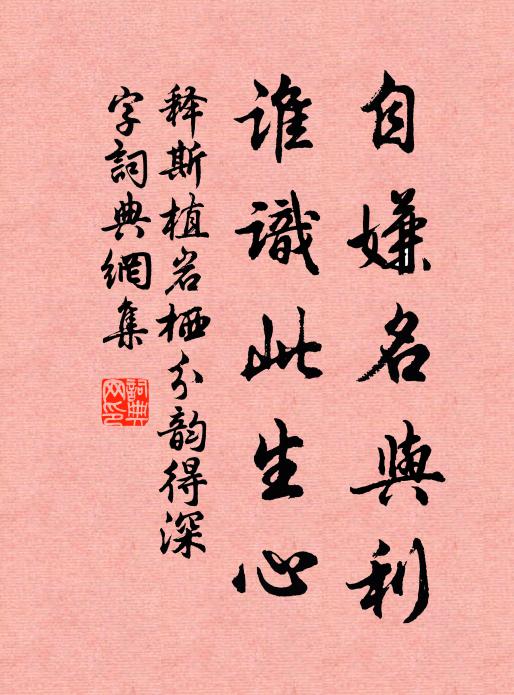 自嫌名與利
誰識此生心
释斯植岩栖分韵得深
字詞典網集
詞典网印